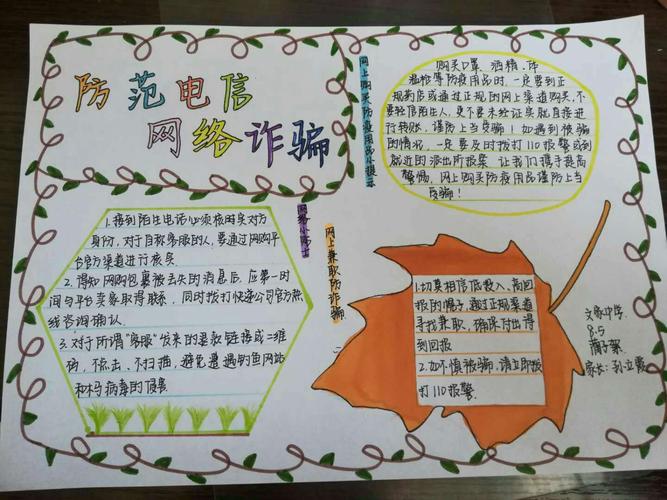 防范电信
网络诈骗
网上购买防疫用品小提示
购买口罩、酒精、体
温枪等防疫用品时,一定要到正
规药店或通过正规的网上渠道购买,不
要轻信陌生人,更不要未经证实就直接进
行转账,谨防上当受骗!如遇到被骗
的情况,一定要及时拨打110报警或到
就近的派出所报案,让我们携手提高
警惕,网上购买防疫用品谨防上当
受骗!
网络小贴士
1.接到陌生电话必须核实对方
身份,对于自称客服的人,要通过网购平
台官方渠道进行核实
2.得知网购包裹被丢失的消息后,应第一时
间与平台卖家取得联系,同时拨打快递公司官方热
线咨询确认.
3.对于所谓“客服”发来的退款链接或二维
码,不点击、不扫描,避免遭遇钓鱼网站
和木马病毒的侵害
网上兼职防诈骗
1.切莫相信低投入、高回
报的幌子,通过正规渠道
寻找兼职,确保付出得
到回报
2.如不慎被骗,请立即拨
打110报警.
中学
8.5
家长:孙立霞